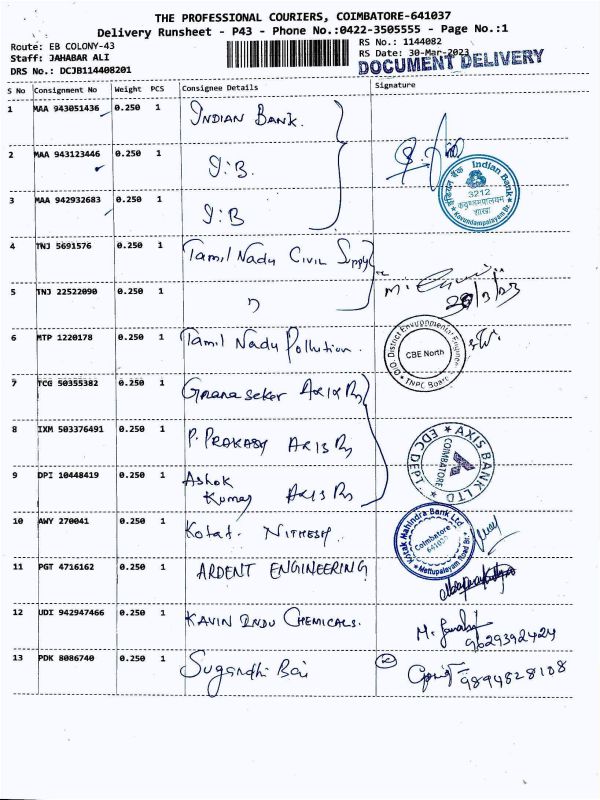 THE PROFESSIONAL COURIERS, COIMBATORE-641037
Delivery Runsheet - P43 - Phone No.:0422-3505555 - Page No.:1
Route: EB COLONY-43
RS No.: 1144082
Staff: JAHABAR ALI
RS Date: 30-Mar-2023
DRS No.: DCJB114408201
DOCUMENT DELIVERY
S No Consignment No Weight PCS Consignee Details Signature
1 MAA 943051436 0.250 1 INDIAN BANK.
2 MAA 943123446 0.250 1 I.B.
3 MAA 942932683 0.250 1 I.B
इंडियन बैंक Indian Bank
3212
शाखा
Kurundampalayam Br.
4 TNJ 5691576 0.250 1 Tamil Nadu Civil Supply
5 TNJ 22522090 0.250 1 "
6 MTP 1220178 0.250 1 Tamil Nadu Pollution.
O/O. District Environmental Engineer
CBE North
TNPC Board
7 TCG 50355382 0.250 1 Gnanaseker
8 IXM 503376491 0.250 1 P. PRAKASH
AXIS BANK LTD
EDC DEPT
COIMBATORE
9 DPI 10448419 0.250 1 Ashok
Kumar
10 AWY 270041 0.250 1 Kotak. NITHESH.
Kotak Mahindra Bank Ltd
Coimbatore
641038
Mettupalayam Road Br.
11 PGT 4716162 0.250 1 ARDENT ENGINEERING
12 UDI 942947466 0.250 1 KAVIN INDU CHEMICALS.
9629392424
13 PDK 8086740 0.250 1 Sugandhi Bai
9894828108